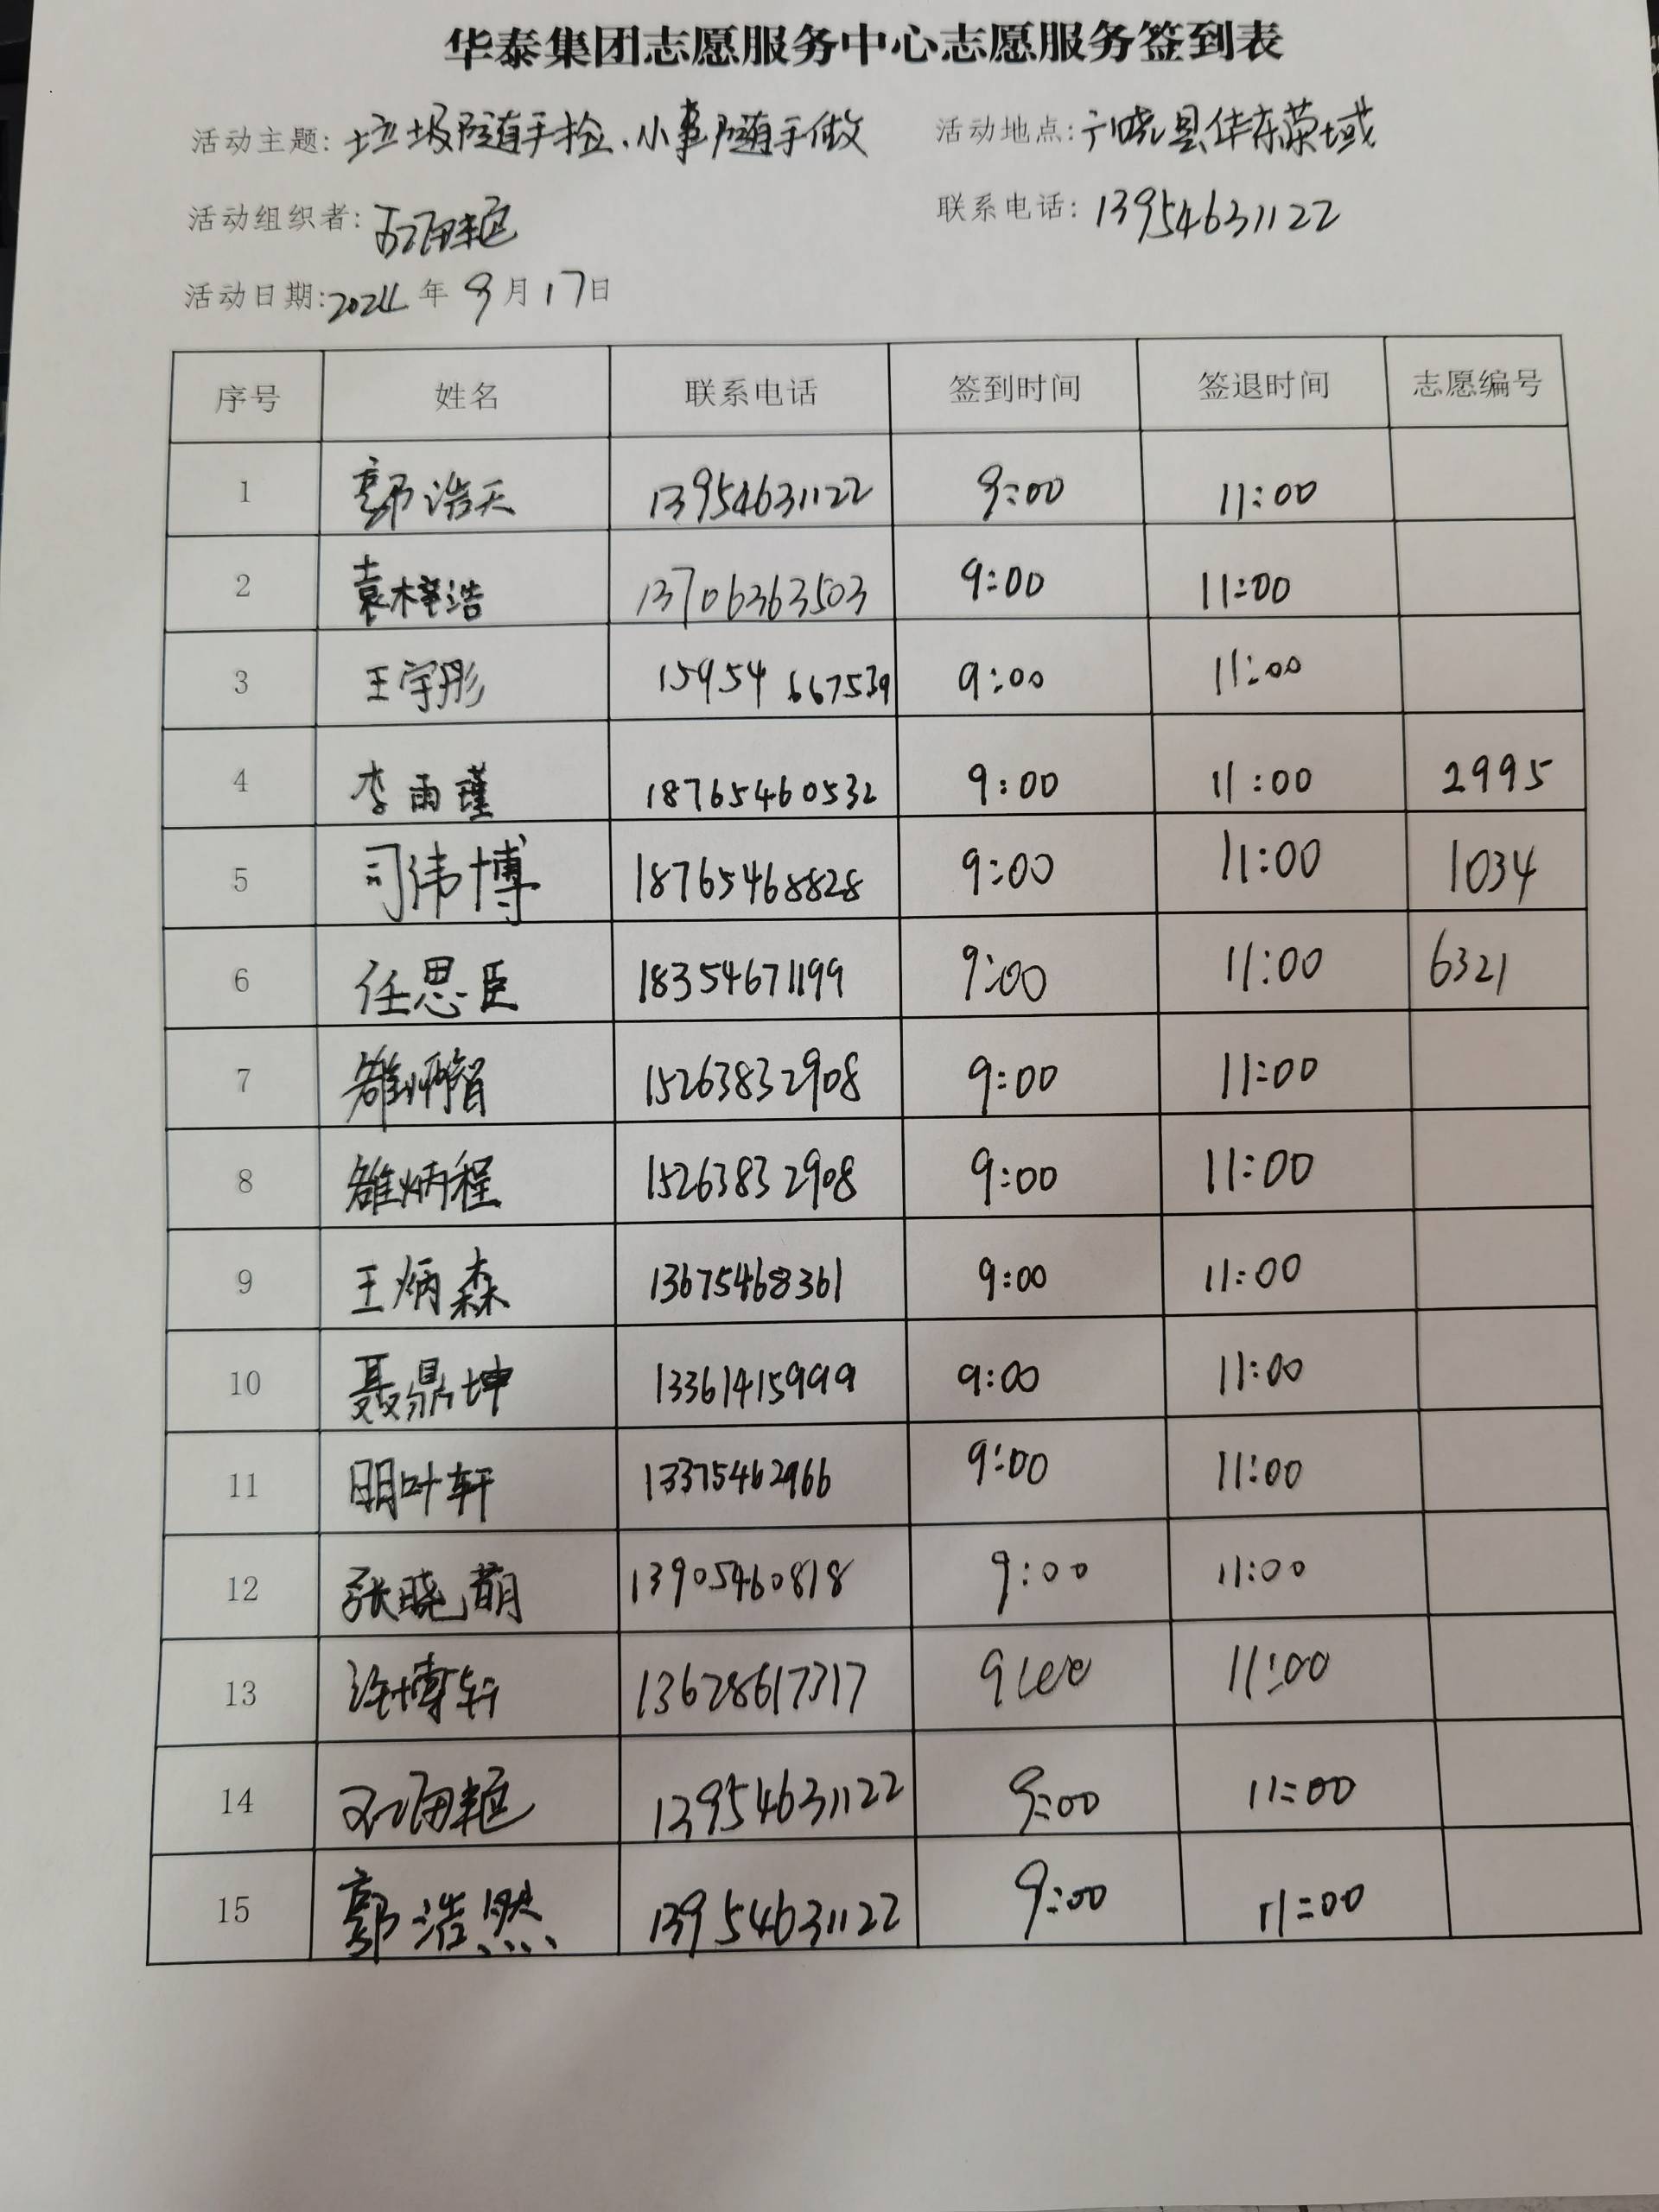 华泰集团志愿服务中心志愿服务签到表
活动主题: 垃圾随手捡、小事随手做 活动地点: 广饶县华泰荣域
活动组织者: 联系电话: 13954631122
活动日期: 2024 年 9 月 17 日
序号 姓名 联系电话 签到时间 签退时间 志愿编号
1 郭浩天 13954631122 9:00 11:00
2 袁梓浩 13706363503 9:00 11:00
3 王宇彤 15954667539 9:00 11:00
4 李雨瑾 18765460532 9:00 11:00 2995
5 司伟博 18765468828 9:00 11:00 1034
6 任思臣 18354671199 9:00 11:00 6321
7 雒炳智 15263832908 9:00 11:00
8 雒炳程 15263832908 9:00 11:00
9 王炳森 13675468361 9:00 11:00
10 聂鼎坤 13361415999 9:00 11:00
11 明叶轩 13375462966 9:00 11:00
12 张晓萌 13905460818 9:00 11:00
13 许博轩 13628617317 9:00 11:00
14 13954631122 9:00 11:00
15 郭浩然 13954631122 9:00 11:00